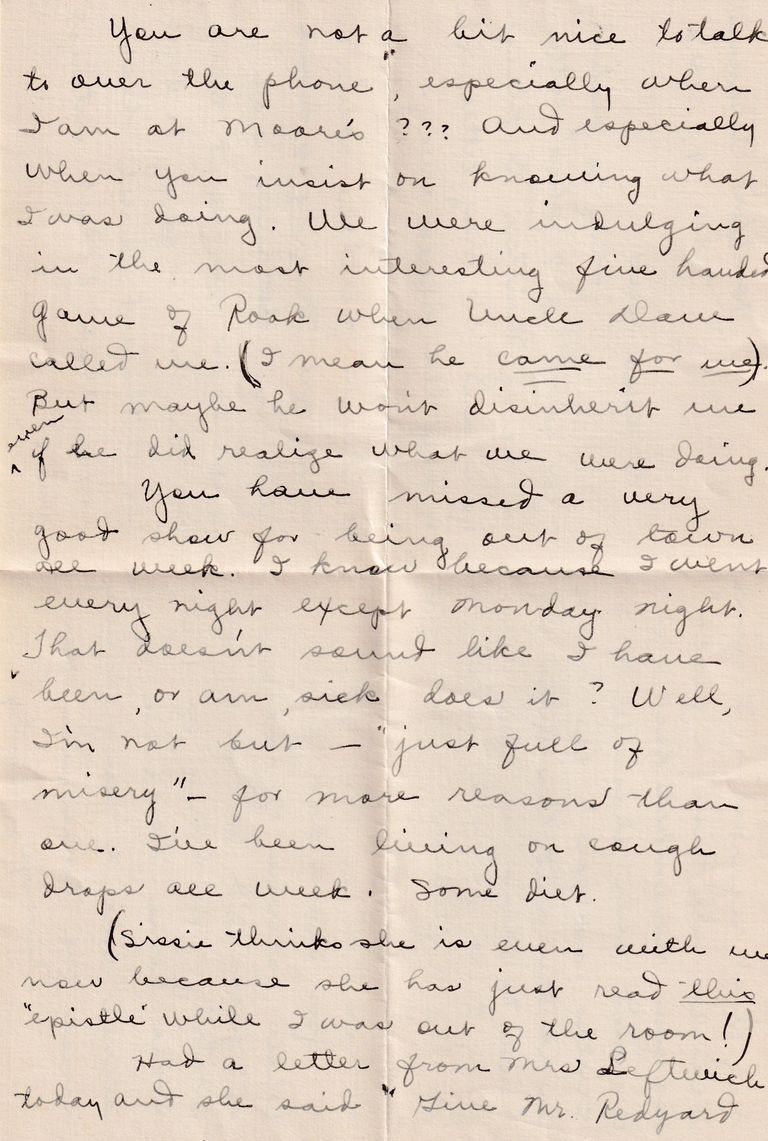 You are not a bit nice to talk
to over the phone, especially when
I am at Moore's ??? And especially
when you insist on knowing what
I was doing. We were indulging
in the most interesting five handed
game of Rook when Uncle Dave
called me. (I mean he came for me).
But maybe he won't disinherit me
even
if he did realize what we were doing.
You have missed a very
good show for being out of town
all week. I know because I went
every night except Monday night.
That doesn't sound like I have
been, or am, sick does it? Well,
I'm not but — "just full of
misery" — for more reasons than
one. I've been living on cough
drops all week. Some diet.
(Sissie thinks she is even with me
now because she has just read this
"epistle" while I was out of the room!)
Had a letter from Mrs Leftwich
today and she said "Give Mr. Redyard